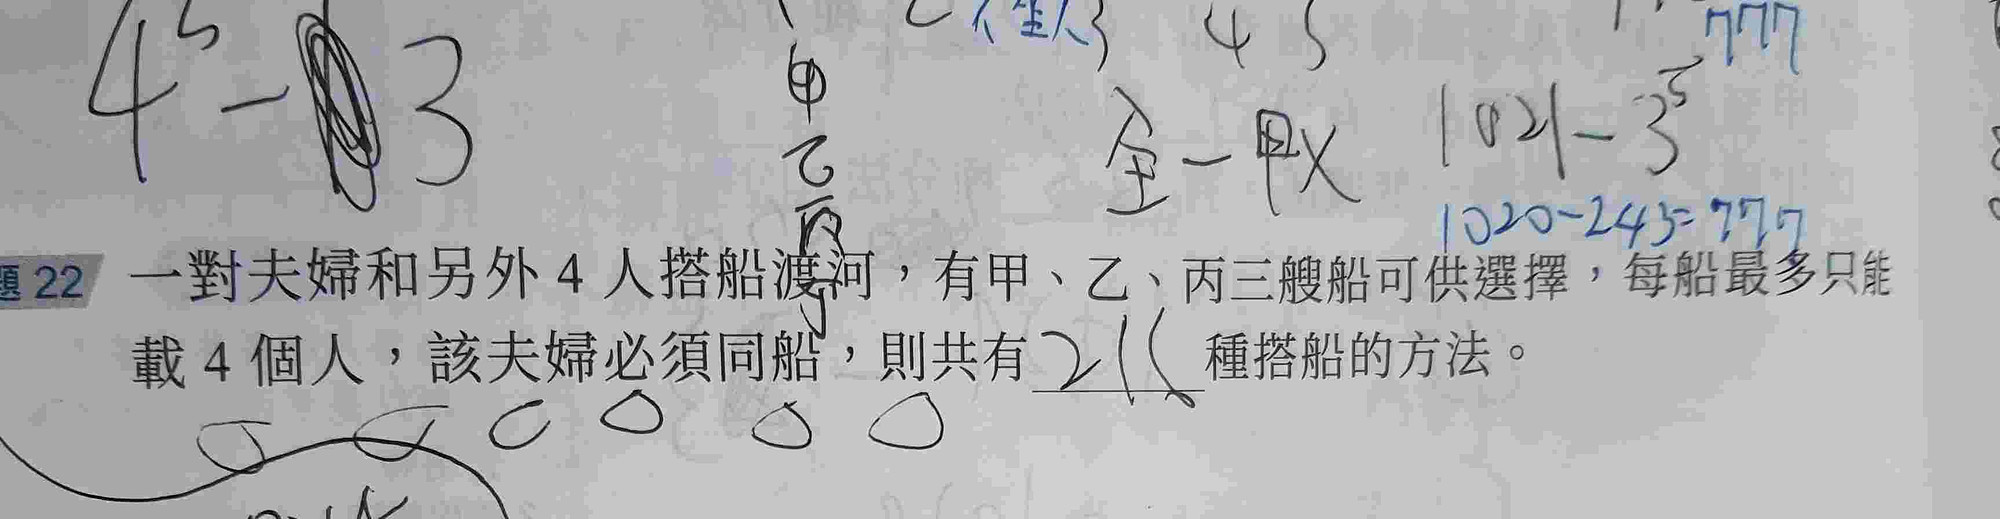 不坐人3 4 5
777
4⁵-3
甲
乙
丙
丁
全-甲X
1021-3⁵
1020-243=777
題22 一對夫婦和另外4人搭船渡河，有甲、乙、丙三艘船可供選擇，每船最多只能
載4個人，該夫婦必須同船，則共有216種搭船的方法。